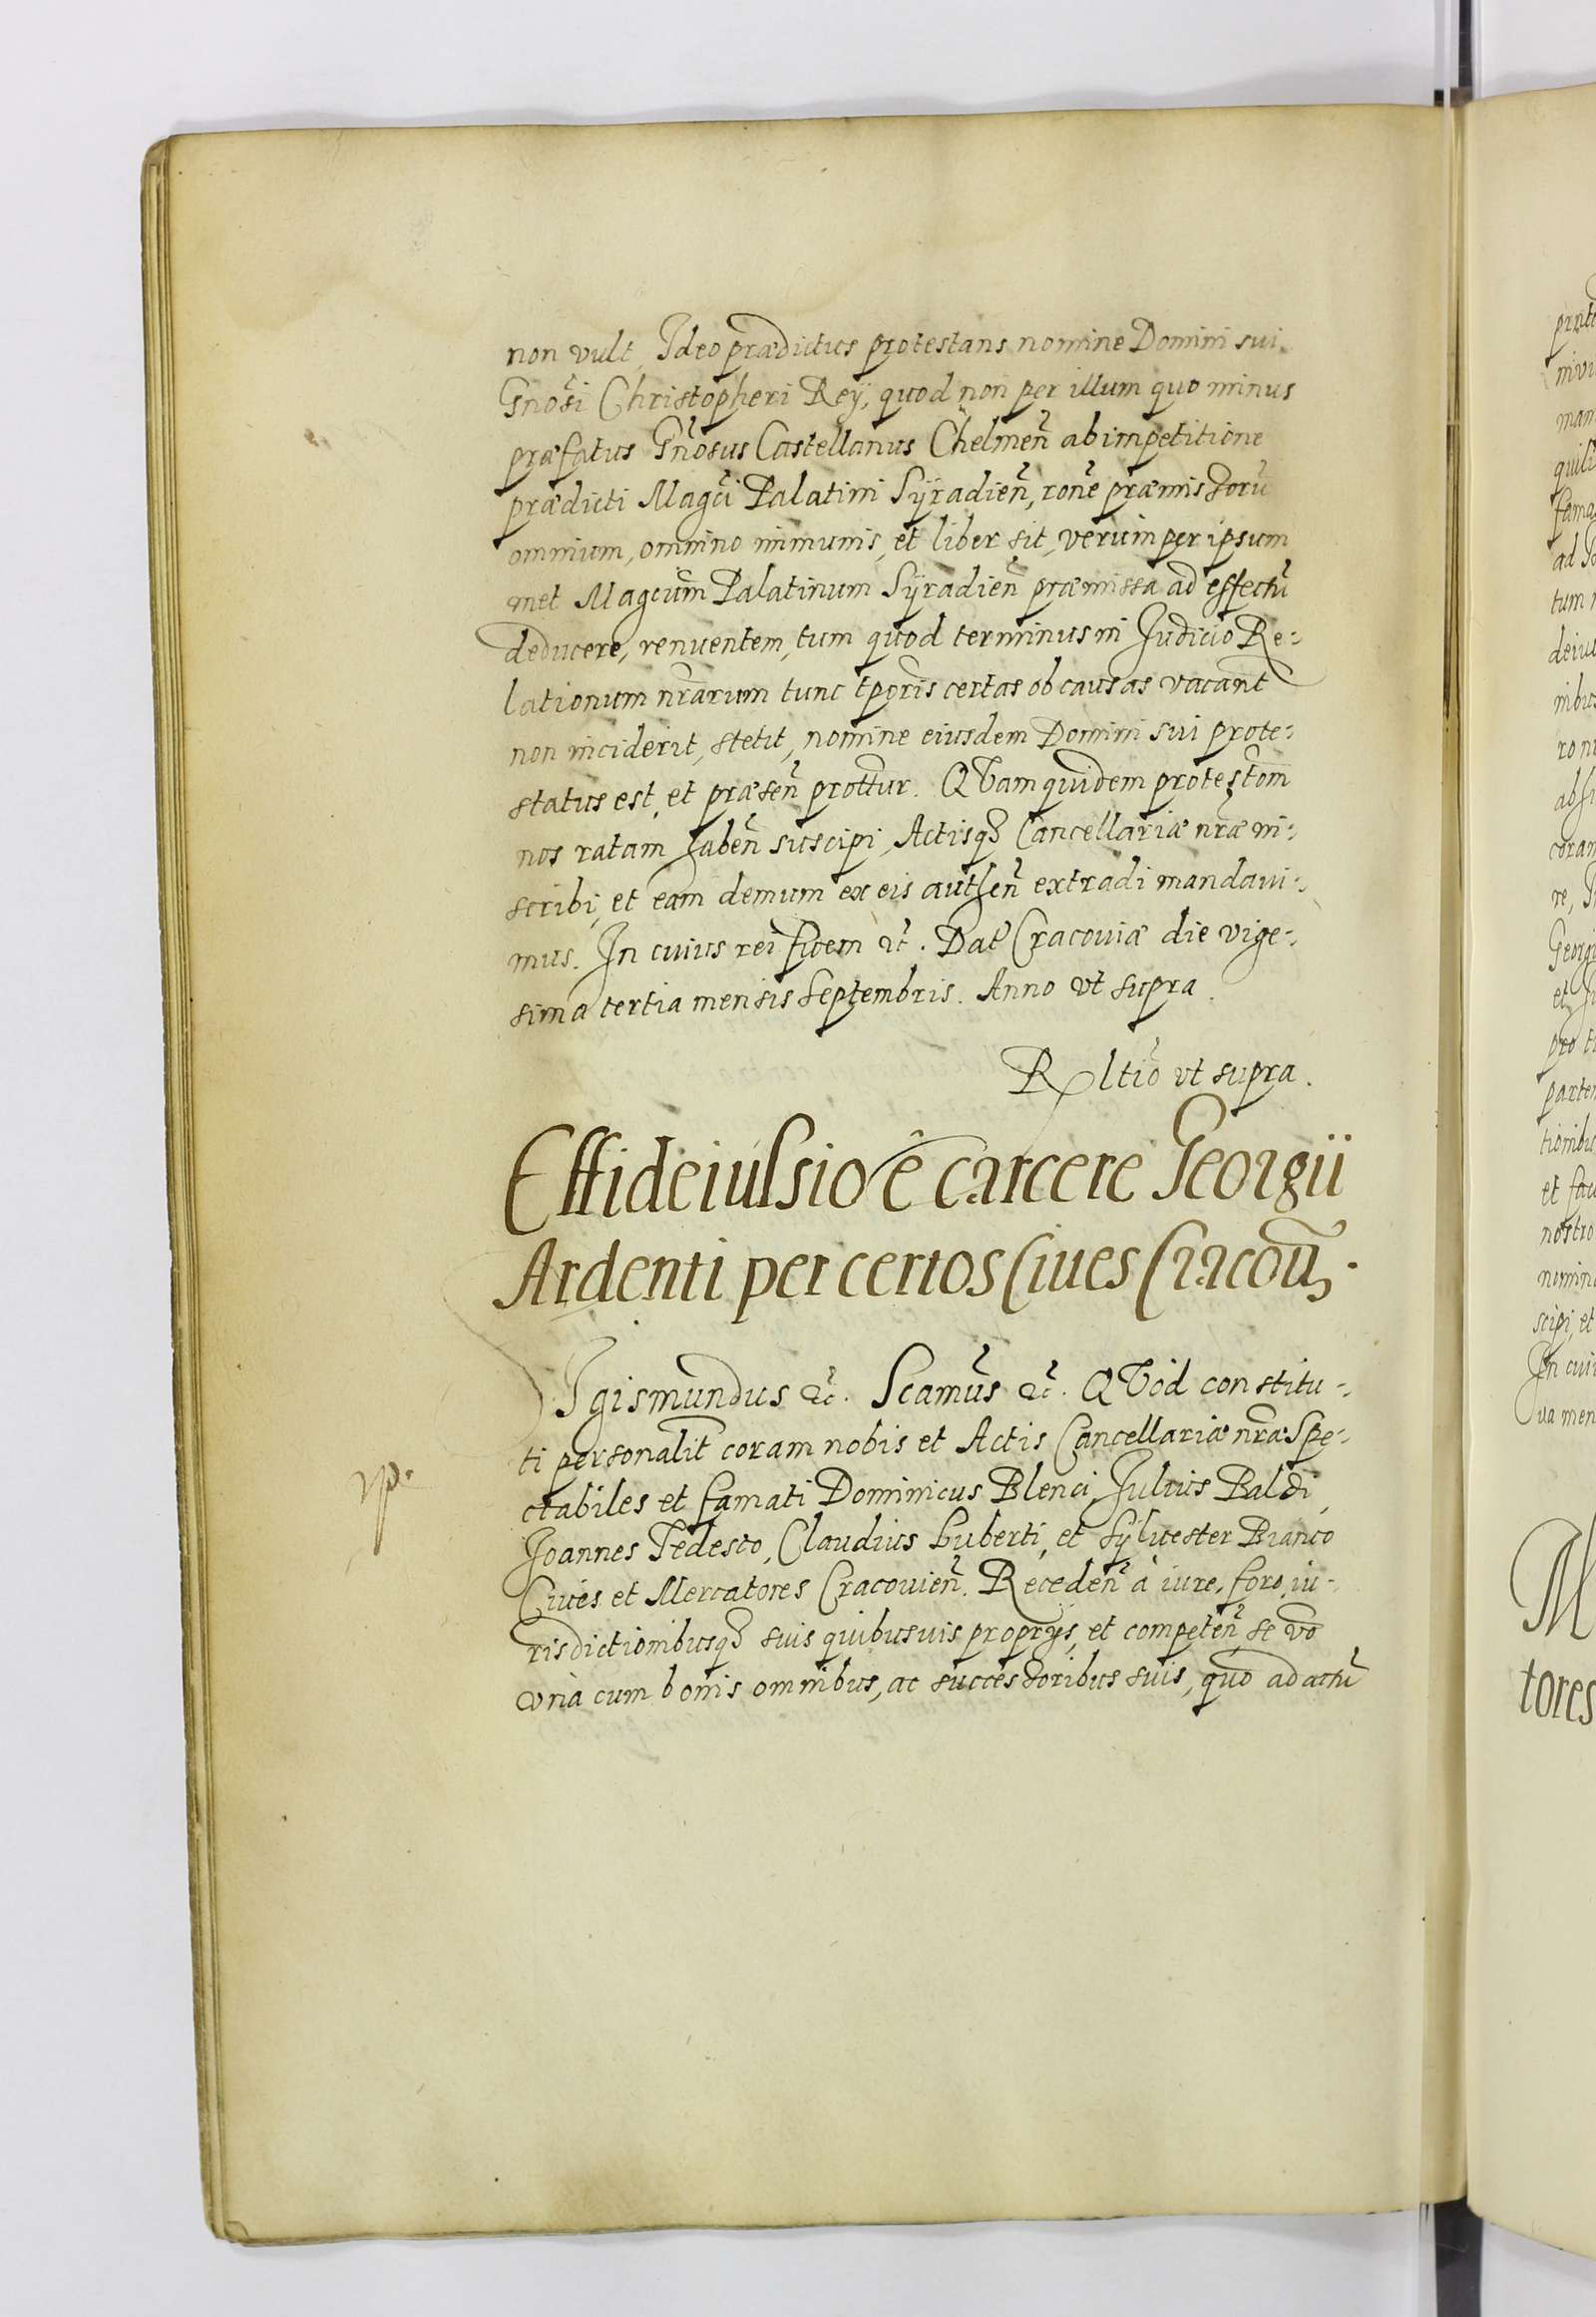 non vult, Ideo prædictus protestans nomine Domini sui
Gnosi Christopheri Reÿ, quod non per illum quo minus
præfatus Gnosus Castellanus Chelmeñ ab impetitione
prædicti Magci Palatini Sÿradieñ, rone præmissorũ
omnium, omnino immunis, et liber sit, verum per ipsum
met Magcum Palatinum Sÿradieñ præmissa ad effectũ
deducere, renuentem, tum quod terminus in Judicio Re-
lationum nrarum tunc tporis certas ob causas vacant
non inciderit, stetit, nomine eiusdem Domini sui prote-
status est, et præseñ prottur. QVam quidem protestom
nos ratam habeñ suscipi, Actisq3 Cancellariæ nræ in-
scribi, et eam demum ex eis autheñ extradi mandaui-
mus. In cuius rei fidem &c. Dat Cracouiæ die vige-
sima tertia mensis Septembris. Anno vt supra.
Rltio vt supra.
Effideiussio ê carcere Georgii
Ardenti per certos Ciues Cracoũ.
SIgismundus &c. Scamus &c. QVod constitu-
ti personalit coram nobis et Actis Cancellariæ nræ Spe-
ctabiles et famati Dominicus Blenci, Julius Baldi,
Joannes Tedesco, Claudius Huberti, et Sÿluester Bianco
Ciues et Mercatores Cracouieñ. Recedeñ à iure, foro, iu-
risdictionibusq3 suis quibusuis proprijs, et competeñ, se vo
vnà cum bonis omnibus, ac successoribus suis, quo ad actũ
M
tores